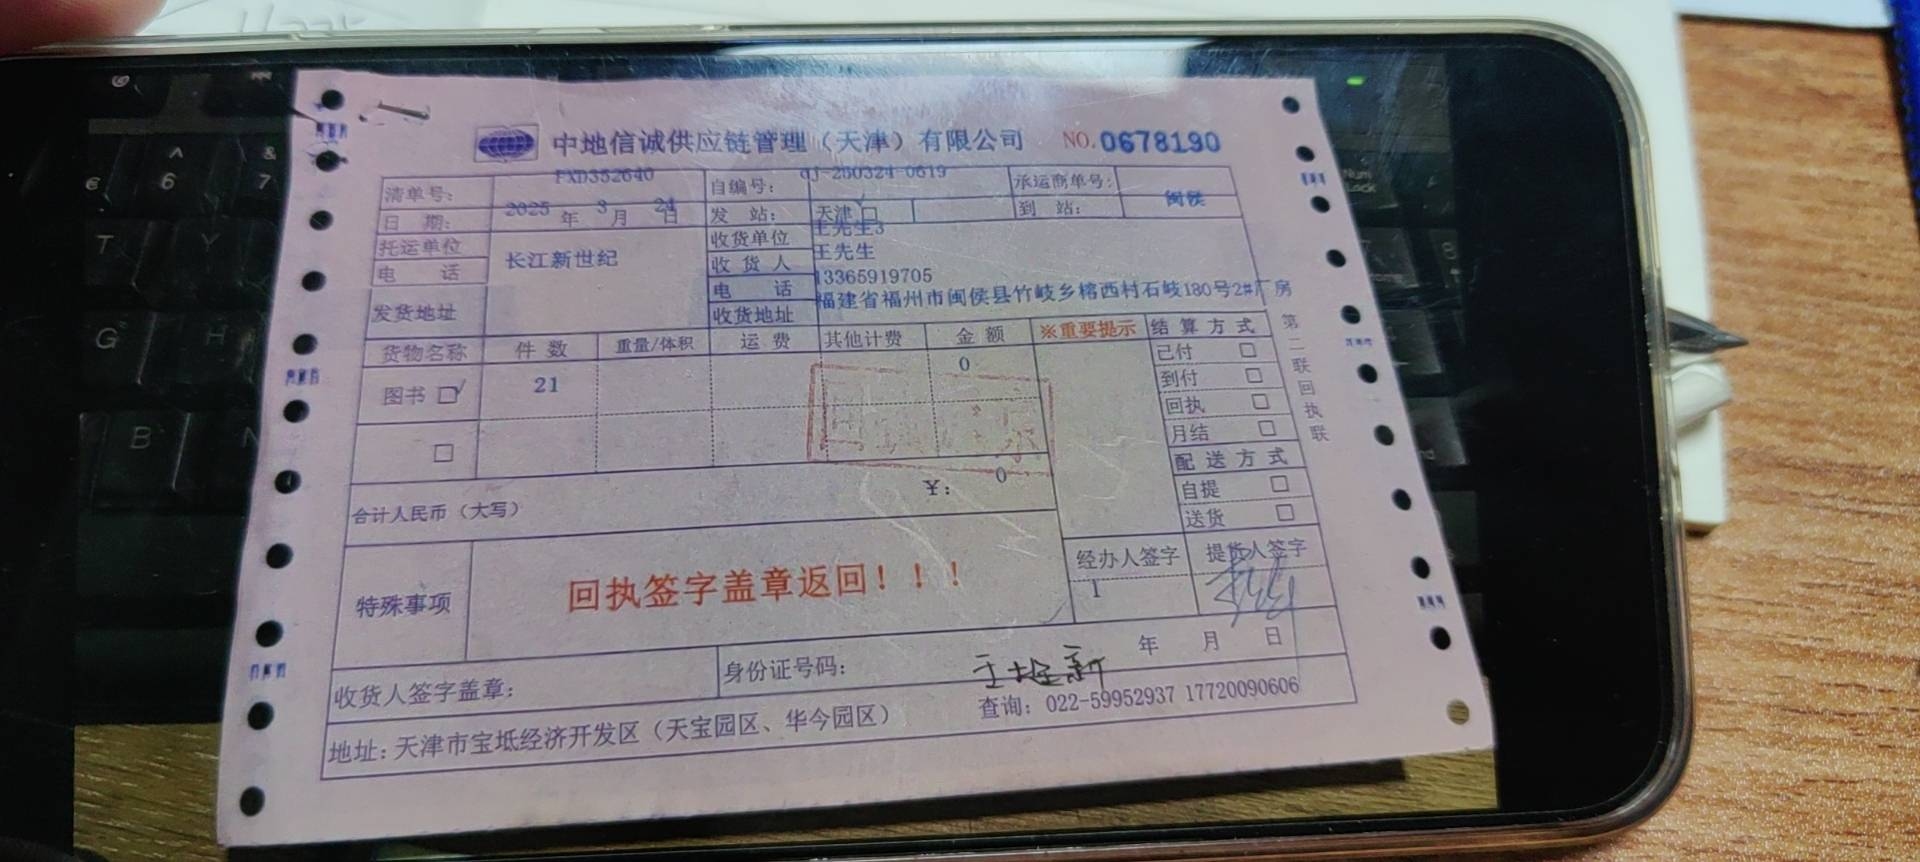 中地信诚供应链管理（天津）有限公司 NO. 0678190
清单号： FXD352640 自编号： cJ-250324-0619 承运商单号：
日 期： 2025 年 3 月 24 日 发 站： 天津 □ 到 站： 闽侯
托运单位 长江新世纪 收货单位 王先生3
电 话 收 货 人 王先生
电 话 13365919705
发货地址 收货地址 福建省福州市闽侯县竹岐乡榕西村石岐180号2#厂房
货物名称 件 数 重量/体积 运 费 其他计费 金 额 ※重要提示 结 算 方 式
图书 □√ 21 0 已付 □
到付 □
回执 □
□ 月结 □
配 送 方 式
合计人民币（大写） ¥： 0 自提 □
送货 □
特殊事项 回执签字盖章返回！！！ 经办人签字 提货人签字
1
收货人签字盖章： 身份证号码： 年 月 日
地址：天津市宝坻经济开发区（天宝园区、华今园区） 查询：022-59952937 17720090606
第二联回执联
^
6
&
7
€
T
Y
G
H
B
N
Num
Lock
8